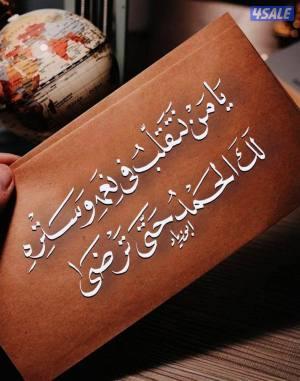 4SALE
يا من نتقلّب في نِعَمِه وسَتْرِهِ
لك الحمدُ حتى ترضى
ابو زياد